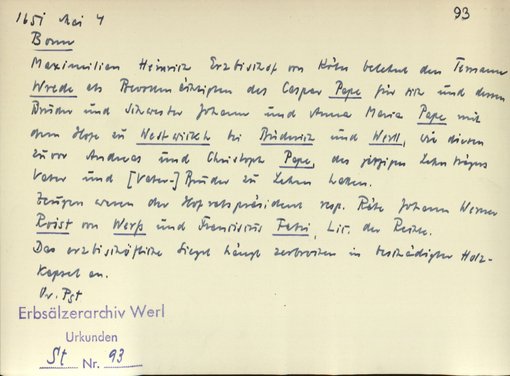 93
1651 Mai 4
Bonn
Maximilian Heinrich Erzbischof von Köln belehnt den Termann
Wrede als Bevollmächtigten des Caspar Pape für sich und dessen
Brüder und Schwester Johann und Anna Maria Pape mit
dem Hofe zu Westwick bei Büderich und Werl, wie diesen
zuvor Andreas und Christoph Pape, des jetzigen Lehnträgers
Vater und [Vater-] Bruder zu Lehen hatten.
Zeugen waren der Hofratspräsident resp. Räte Johann Werner
Roist von Werß und Franciscus Fabri, Lic. der Rechte.
Das erzbischöfliche Siegel hängt zerbrochen in beschädigter Holz-
kapsel an.
Or. Pgt
Erbsälzerarchiv Werl
Urkunden
St Nr. 93